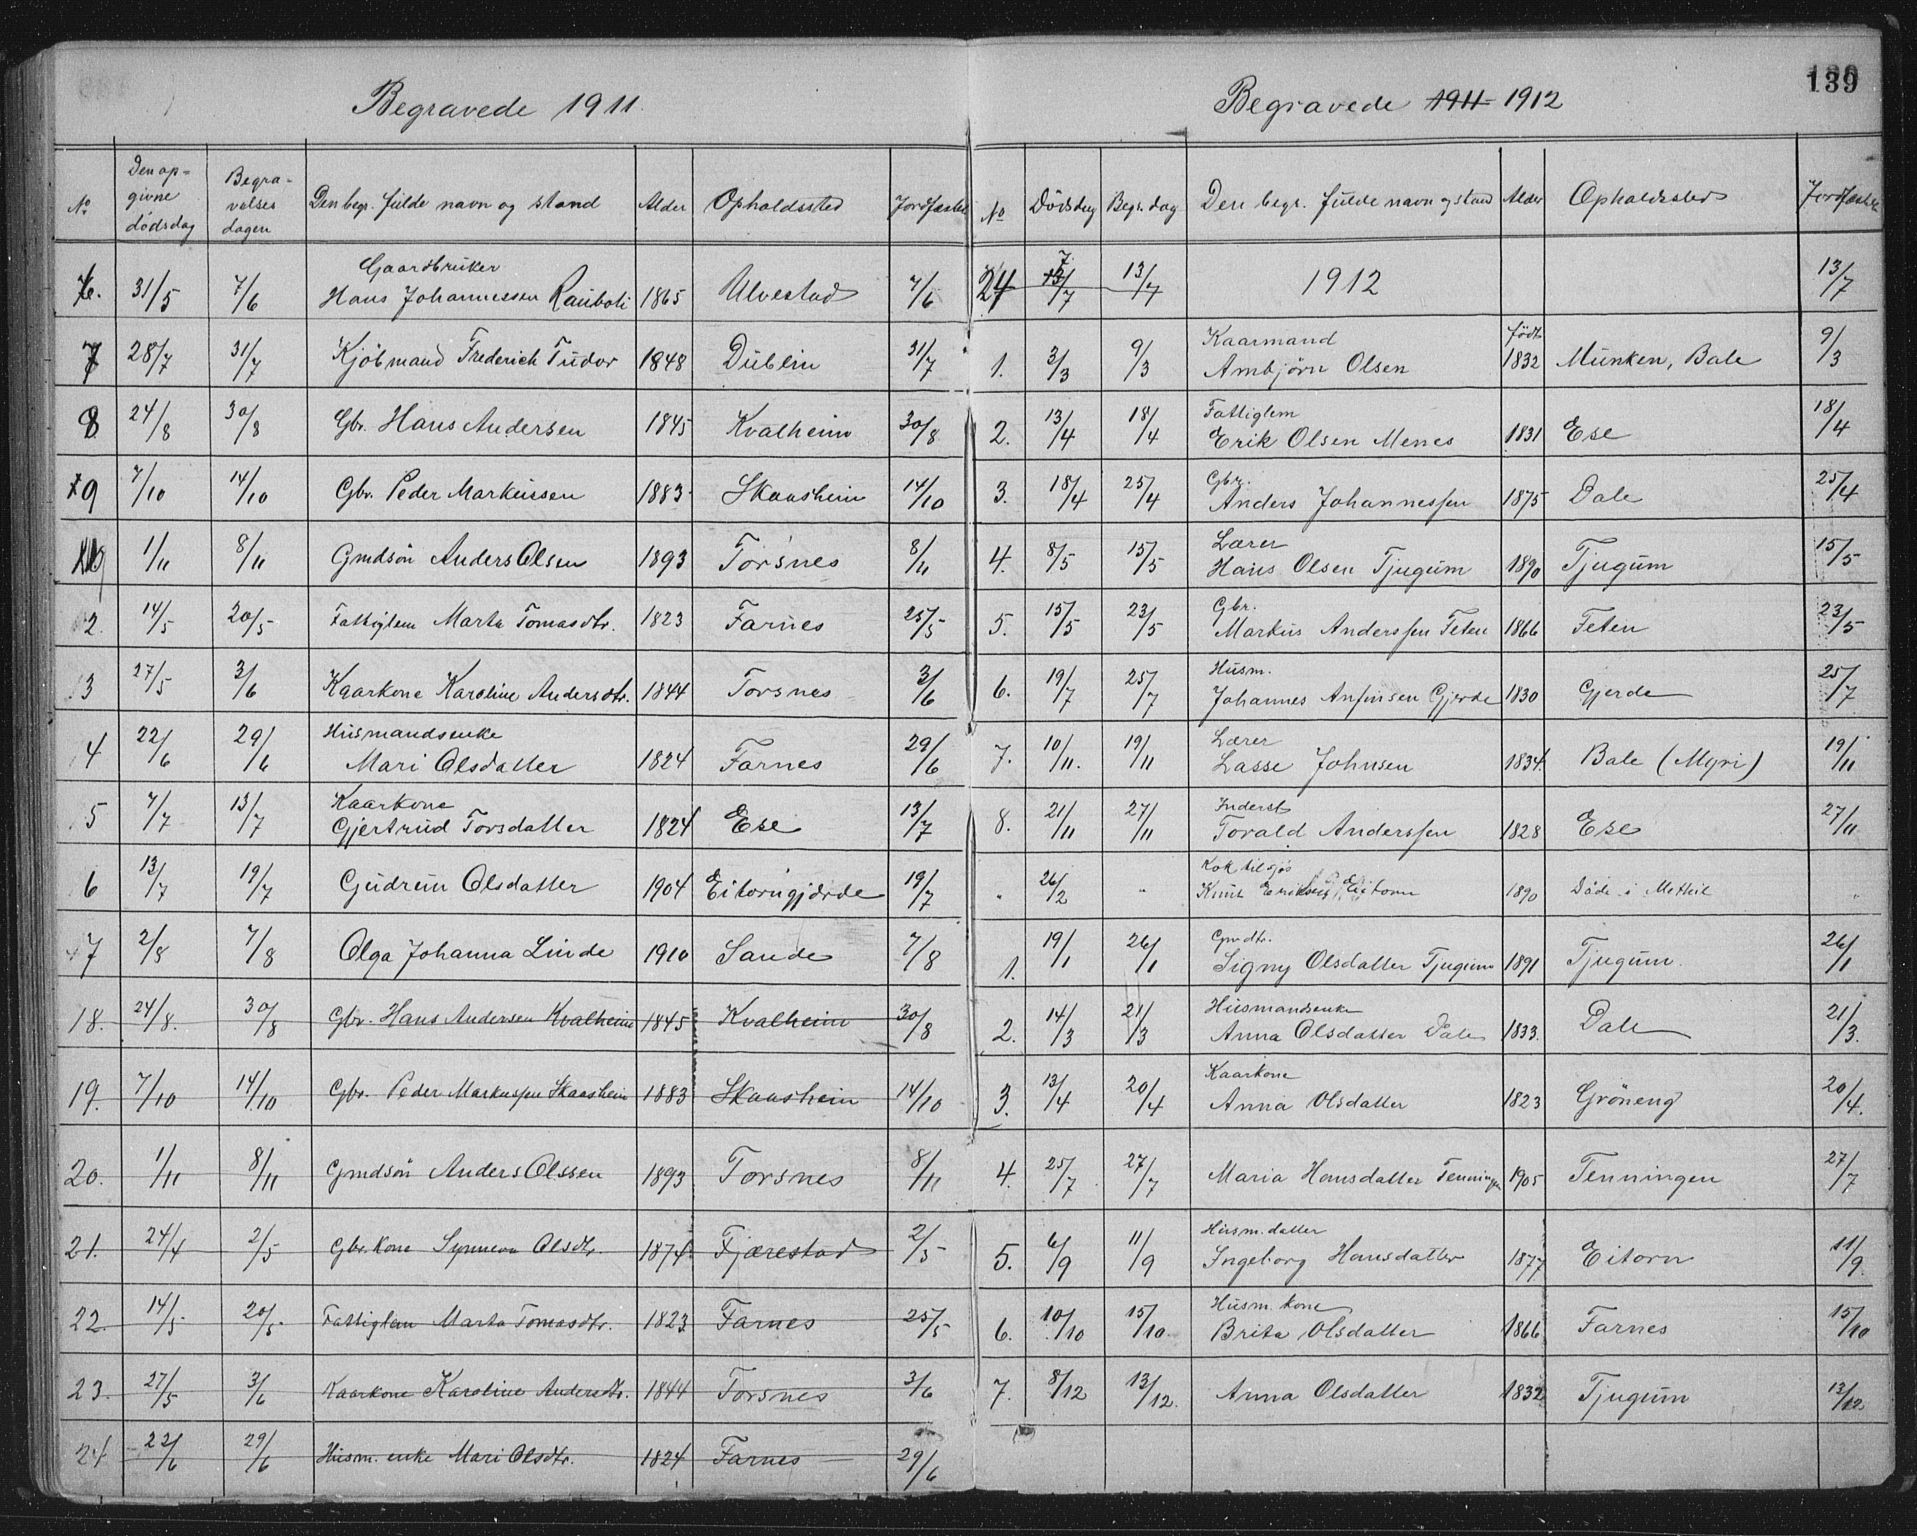 139
Begravede 1911.
No | Den opgivne dødsdag | Begravelses dagen | Den begr. fulde navn og stand | Alder | Opholdssted | Jordfæstet
6. | 31/5 | 7/6 | Gaardbruker Hans Johannessen | 1865 | Ulvestad | 7/6
7 | 28/7 | 31/7 | Kjöbmand Frederich Tudor | 1848 | Dublin | 31/7
8 | 24/8 | 30/8 | Gbr. Hans Andersen | 1845 | Kvalheim | 30/8
9 | 7/10 | 14/10 | Gbr. Peder Markussen | 1883 | Skaasheim | 14/10
1/11 | 8/11 | Gmdsön Anders Olsen | 1893 | Torsnes | 8/11
2. | 14/5 | 20/5 | Fattiglem Marta Tomasdtr. | 1823 | Farnes | 25/5
3 | 27/5 | 3/6 | Kaarkone Karoline Andersdtr. | 1844 | Torsnes | 3/6
4 | 22/6 | 29/6 | Husmandsenke Mari Olsdatter | 1824 | Farnes | 29/6
5 | 7/7 | 13/7 | Kaarkone Gjertrud Torsdatter | 1824 | Ese | 13/7
6 | 13/7 | 19/7 | Gudrun Olsdatter | 1904 | Eitorngjærde | 19/7
7 | 2/8 | 7/8 | Olga Johanna Linde | 1910 | Sande | 7/8
18. | 24/8. | 30/8 | Gbr. Hans Andersen Kvalheim | 1845 | Kvalheim | 30/8
19. | 7/10 | 14/10 | Gbr. Peder Markussen Skaasheim | 1883 | Skaasheim | 14/10
20. | 1/11 | 8/11 | Gmdsön Anders Olssen | 1893 | Torsnes | 8/11
21. | 24/4 | 2/5 | Gbr. kone Synneva Olsdtr. | 1874 | Fjærestad | 2/5
22. | 14/5 | 20/5 | Fattiglem Marta Tomasdtr. | 1823 | Farnes | 25/5
23. | 27/5 | 3/6 | Kaarkone Karoline Andersdtr. | 1844 | Torsnes | 3/6
24 | 22/6 | 29/6 | Husm. enke Mari Olsdtr. | 1824 | Farnes | 29/6
Begravede 1911 1912
No | Dödsdag | Begr. dag | Den begr. fulde navn og stand | Alder | Opholdssted | Jordfæstet
24 | 13/7 | 13/7 | 1912 | 13/7
1. | 3/3 | 9/3 | Kaarmand Ambjørn Olsen | født 1832 | Munken, Bale | 9/3
2. | 13/4 | 18/4 | Fattiglem Erik Olsen Menes | 1831 | Ese | 18/4
3. | 18/4 | 25/4 | Gbr. Anders Johannessen | 1875 | Dale | 25/4
4. | 8/5 | 15/5 | Lærer Hans Olsen Tjugum | 1890 | Tjugum | 15/5
5. | 15/5 | 23/5 | Gbr. Markus Anderssen Feten | 1866 | Feten | 23/5
6. | 19/7 | 25/7 | Husm. Johannes Anfinsen Gjerde | 1830 | Gjerde | 25/7
7. | 10/11. | 19/11 | Lærer Lasse Johnsen | 1834. | Bale (Myri) | 19/11
8. | 21/11 | 27/11 | Inderst Torald Anderssen | 1828 | Ese | 27/11
" | 26/2 | " | Kok tilsjøs Knut Eriksen Eitorn | 1890 | Döde i Methil | "
1. | 19/1 | 26/1 | Gmdtr. Signy Olsdatter Tjugum | 1891 | Tjugum. | 26/1
2. | 14/3 | 21/3 | Husmandsenke Anna Olsdatter Dale | 1833. | Dale | 21/3.
3. | 13/4 | 20/4 | Kaarkone Anna Olsdatter | 1823 | Gröneng | 20/4.
4. | 25/7 | 27/7 | Maria Hansdatter Tenningen | 1905 | Tenningen | 27/7
5. | 6/9 | 11/9 | Husm. datter Ingeborg Hansdatter | 1877 | Eitorn | 11/9.
6. | 10/10 | 15/10. | Husm. kone Brita Olsdatter | 1866 | Farnes | 15/10
7. | 8/12 | 13/12. | Anna Olsdatter | 1832 | Tjugum | 13/12